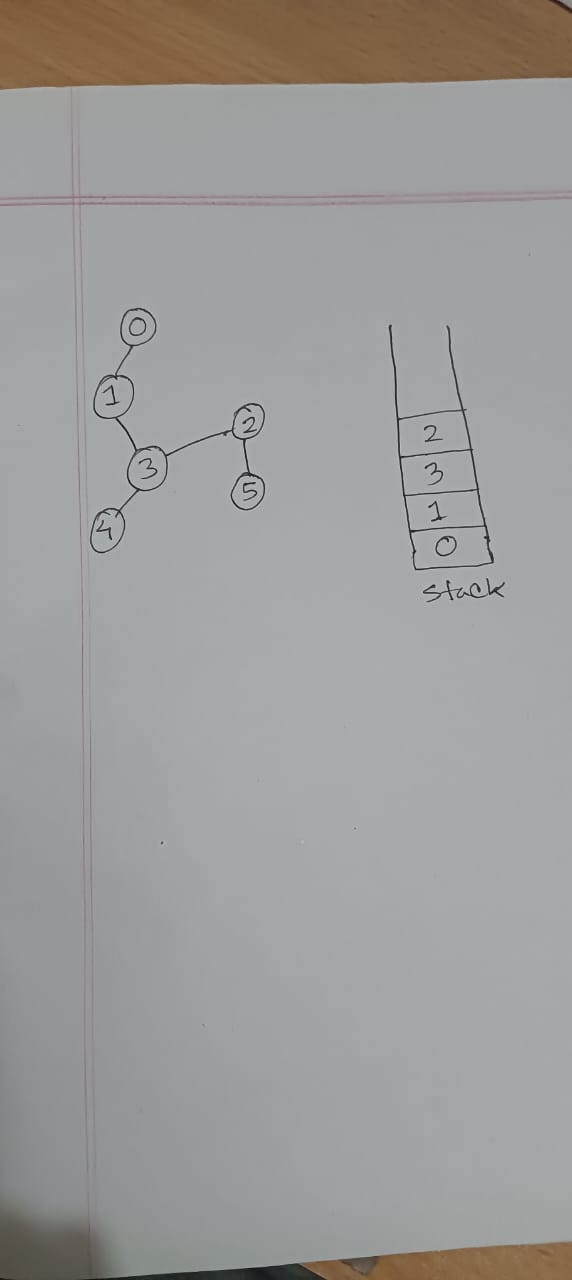 0
1
2
3
5
4
2
3
1
0
stack